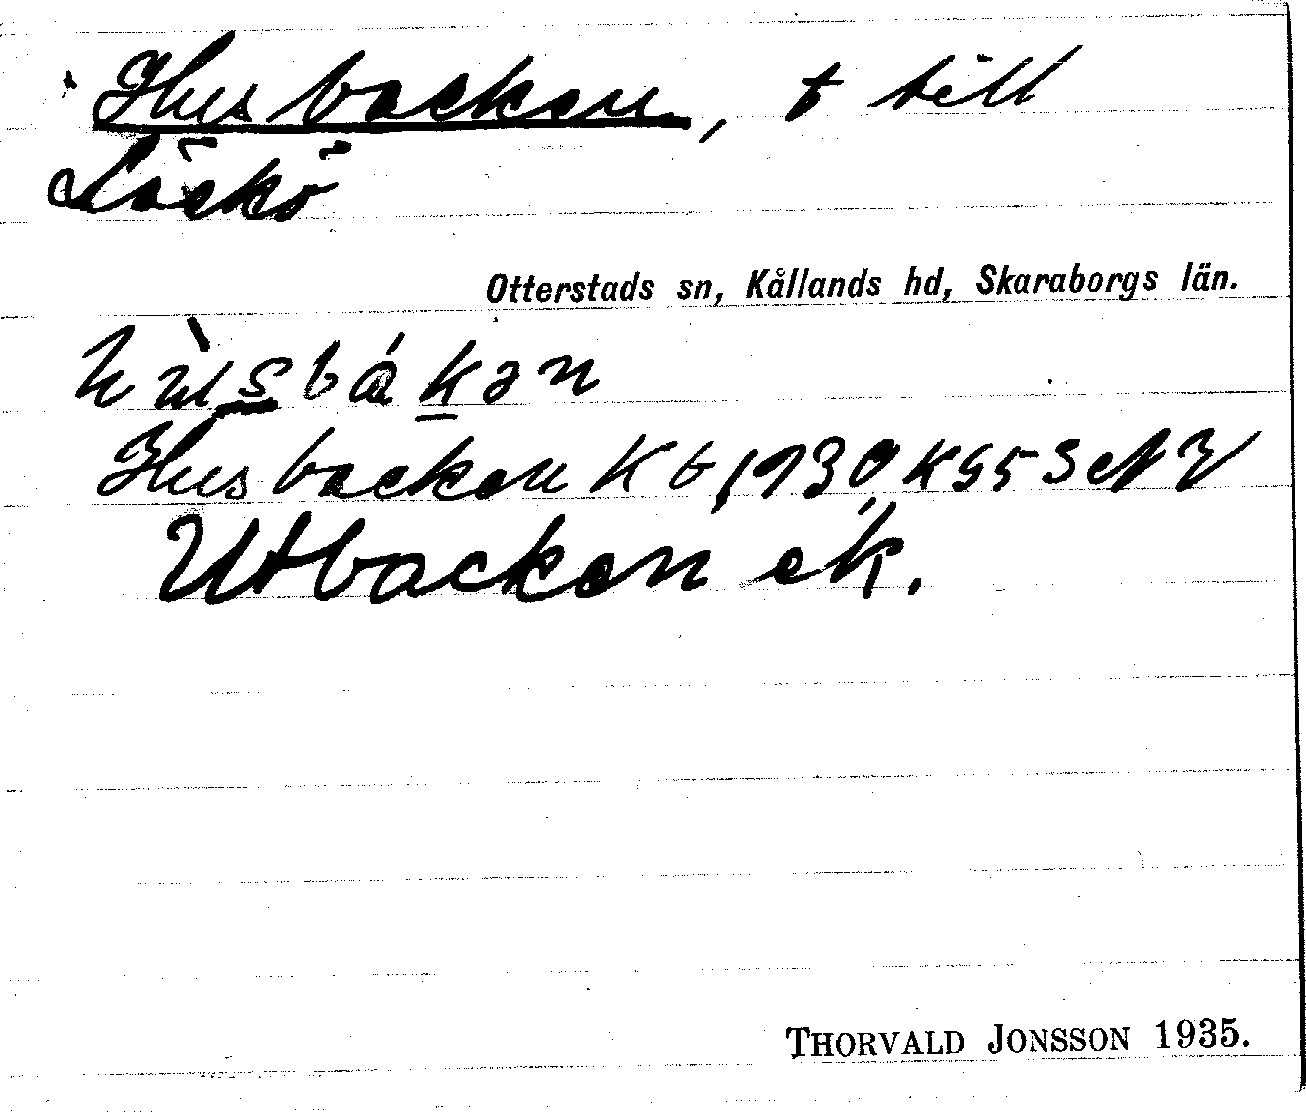 Husbacken, t till
Läckö
Otterstads sn, Kållands hd, Skaraborgs län.
hùsbákən
Husbacken Kb, 1930 K 955 3 NV
Utbacken ek.
THORVALD JONSSON 1935.